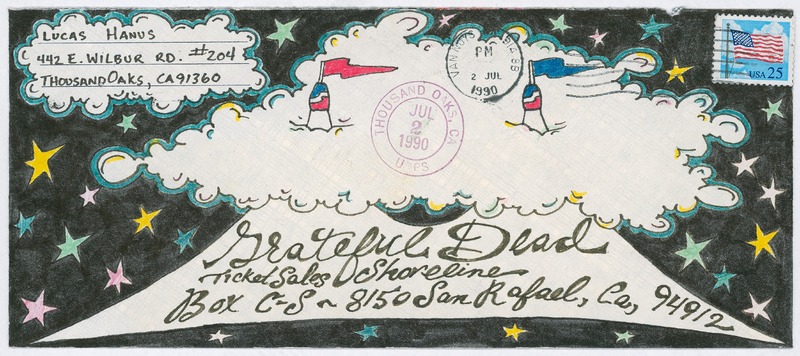 LUCAS HANUS
442 E. WILBUR RD. #204
THOUSAND OAKS, CA 91360
PM
2 JUL
1990
THOUSAND OAKS, CA
JUL
2
1990
USPS
USA 25
Grateful Dead
Ticket Sales Shoreline
Box C-S ~ 8150 San Rafael, Ca, 94912